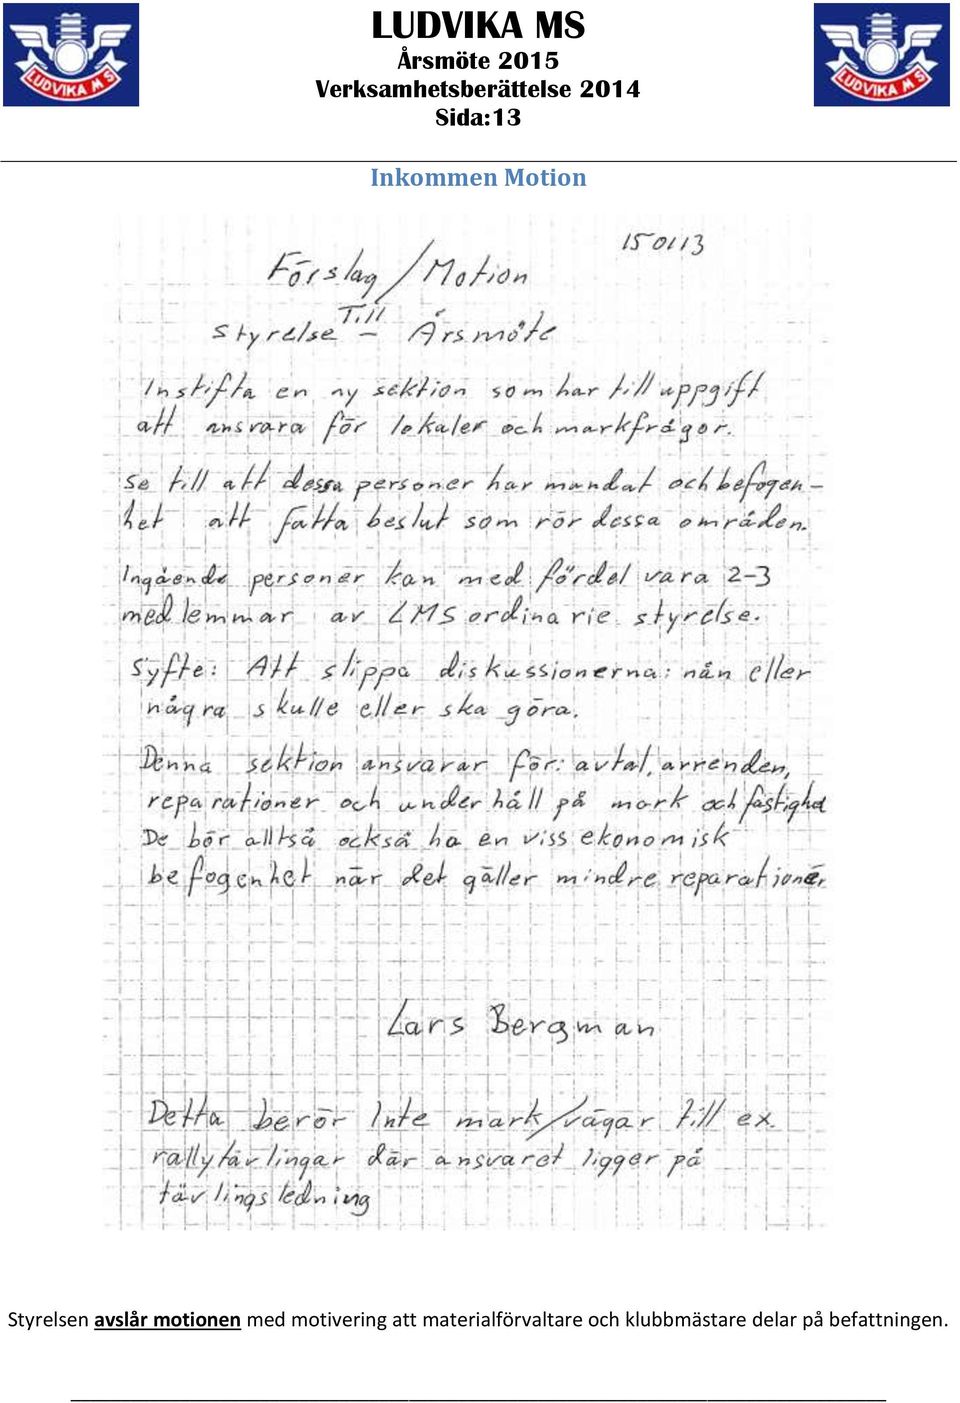 LUDVIKA MS
LUDVIKA MS
LUDVIKA MS
Årsmöte 2015
Verksamhetsberättelse 2014
Sida:13
Inkommen Motion
150113
Förslag/Motion
Till
Styrelse – Årsmöte
Instifta en ny sektion som har till uppgift
att ansvara för lokaler och markfrågor.
Se till att dessa personer har mandat och befogen-
het att fatta beslut som rör dessa områden.
Ingående personer kan med fördel vara 2-3
medlemmar av LMS ordinarie styrelse.
Syfte: Att slippa diskussionerna: nån eller
några skulle eller ska göra.
Denna sektion ansvarar för: avtal, arrenden,
reparationer och underhåll på mark och fastighet
De bör alltså också ha en viss ekonomisk
befogenhet när det gäller mindre reparationer
Lars Bergman
Detta berör Inte mark/vägar till ex.
rallytävlingar där ansvaret ligger på
tävlingsledning
Styrelsen avslår motionen med motivering att materialförvaltare och klubbmästare delar på befattningen.